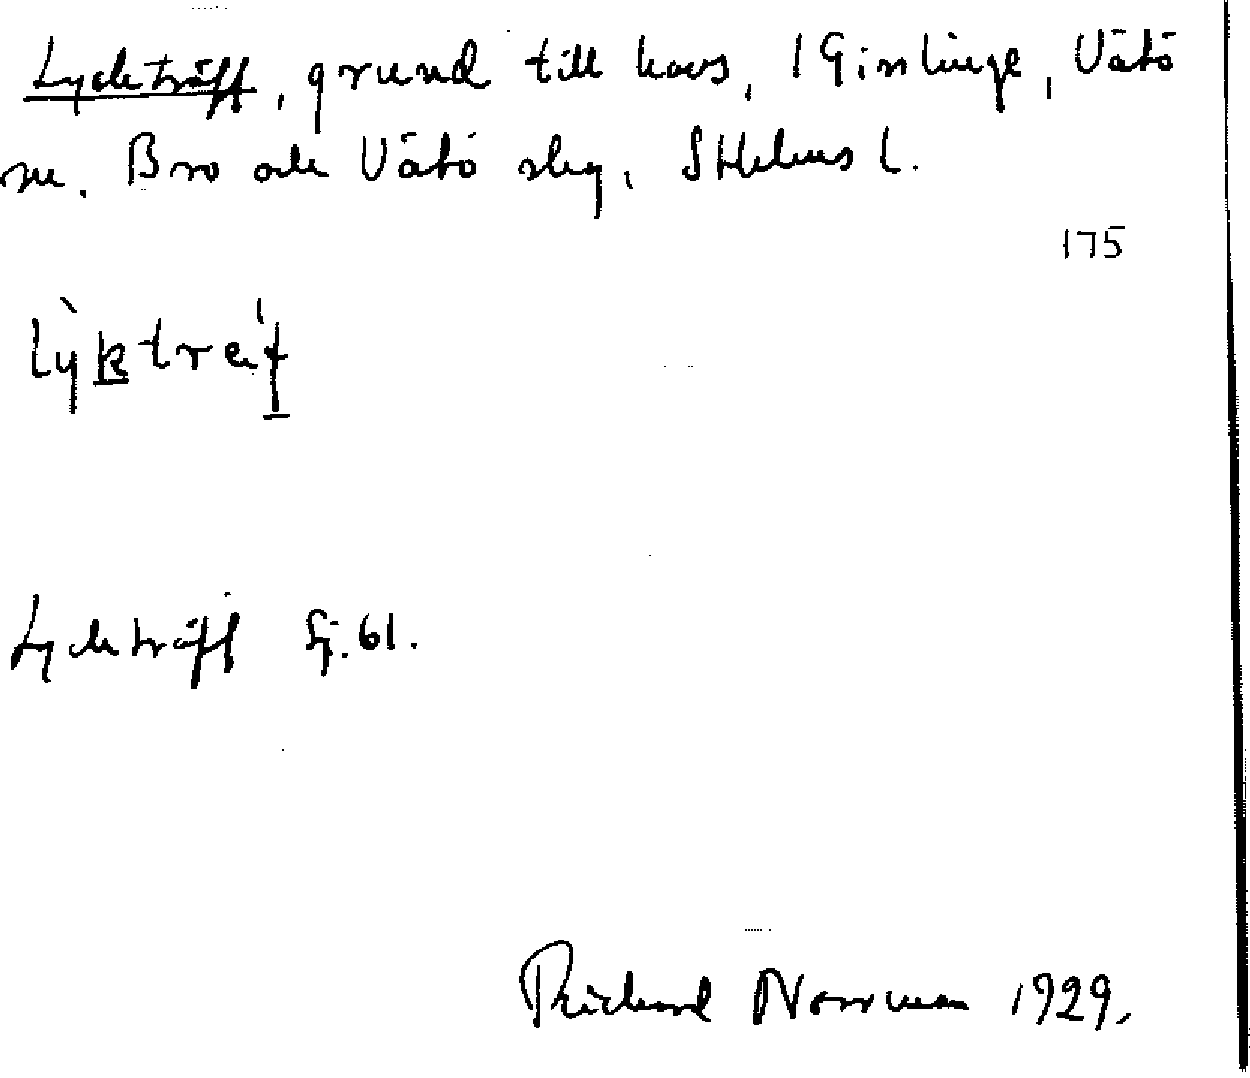 Lyckträff, grund till havs, 1 Gisslinge, Vätö
sn. Bro och Vätö skg, Sthlms l.
175
Lyckträff fj. 61.
Richard Norrman 1929.